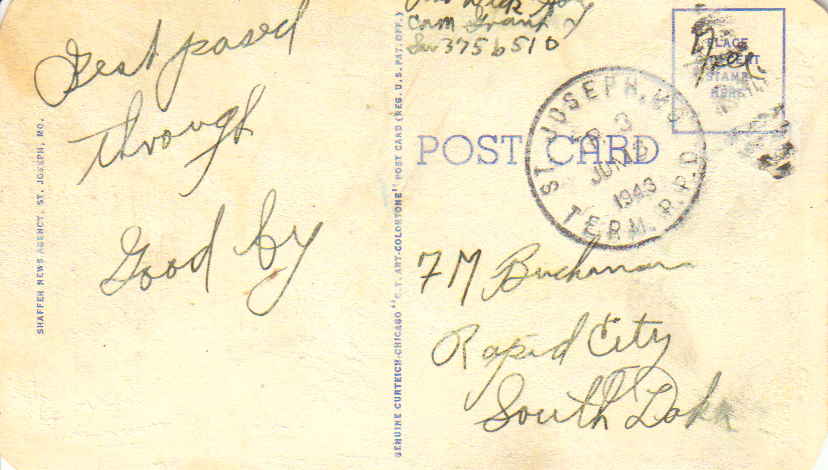 Just pased
through
Good by
SHAFFER NEWS AGENCY, ST. JOSEPH, MO.
GENUINE CURTEICH-CHICAGO "C.T. ART-COLORTONE" POST CARD (REG. U.S. PAT. OFF.)
Cam Grant
Su 3756510
Free
PLACE
STAMP
HERE
POST CARD
ST. JOSEPH, MO.
3
JUN 16
1943
TERM. R.P.O.
7 M Buchanan
Rapid City
South Dak